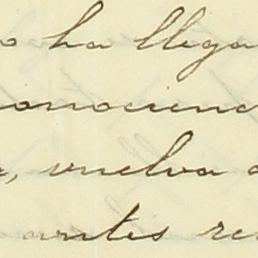 o ha llega
onociend
, vuelva a
antes re